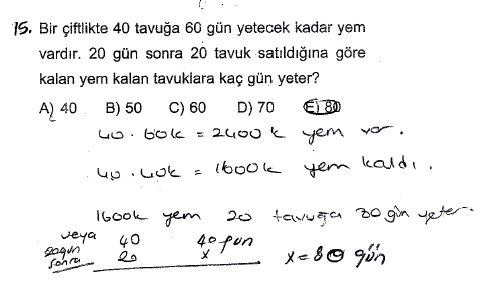 15. Bir çiftlikte 40 tavuğa 60 gün yetecek kadar yem
vardır. 20 gün sonra 20 tavuk satıldığına göre
kalan yem kalan tavuklara kaç gün yeter?
A) 40 B) 50 C) 60 D) 70 E) 80
40 . 60k = 2400k yem var.
40 . 40k = 1600k yem kaldı.
1600k yem 20 tavuğa 80 gün yeter.
veya 20 gün sonra
40 40 gün
20 x x = 80 gün